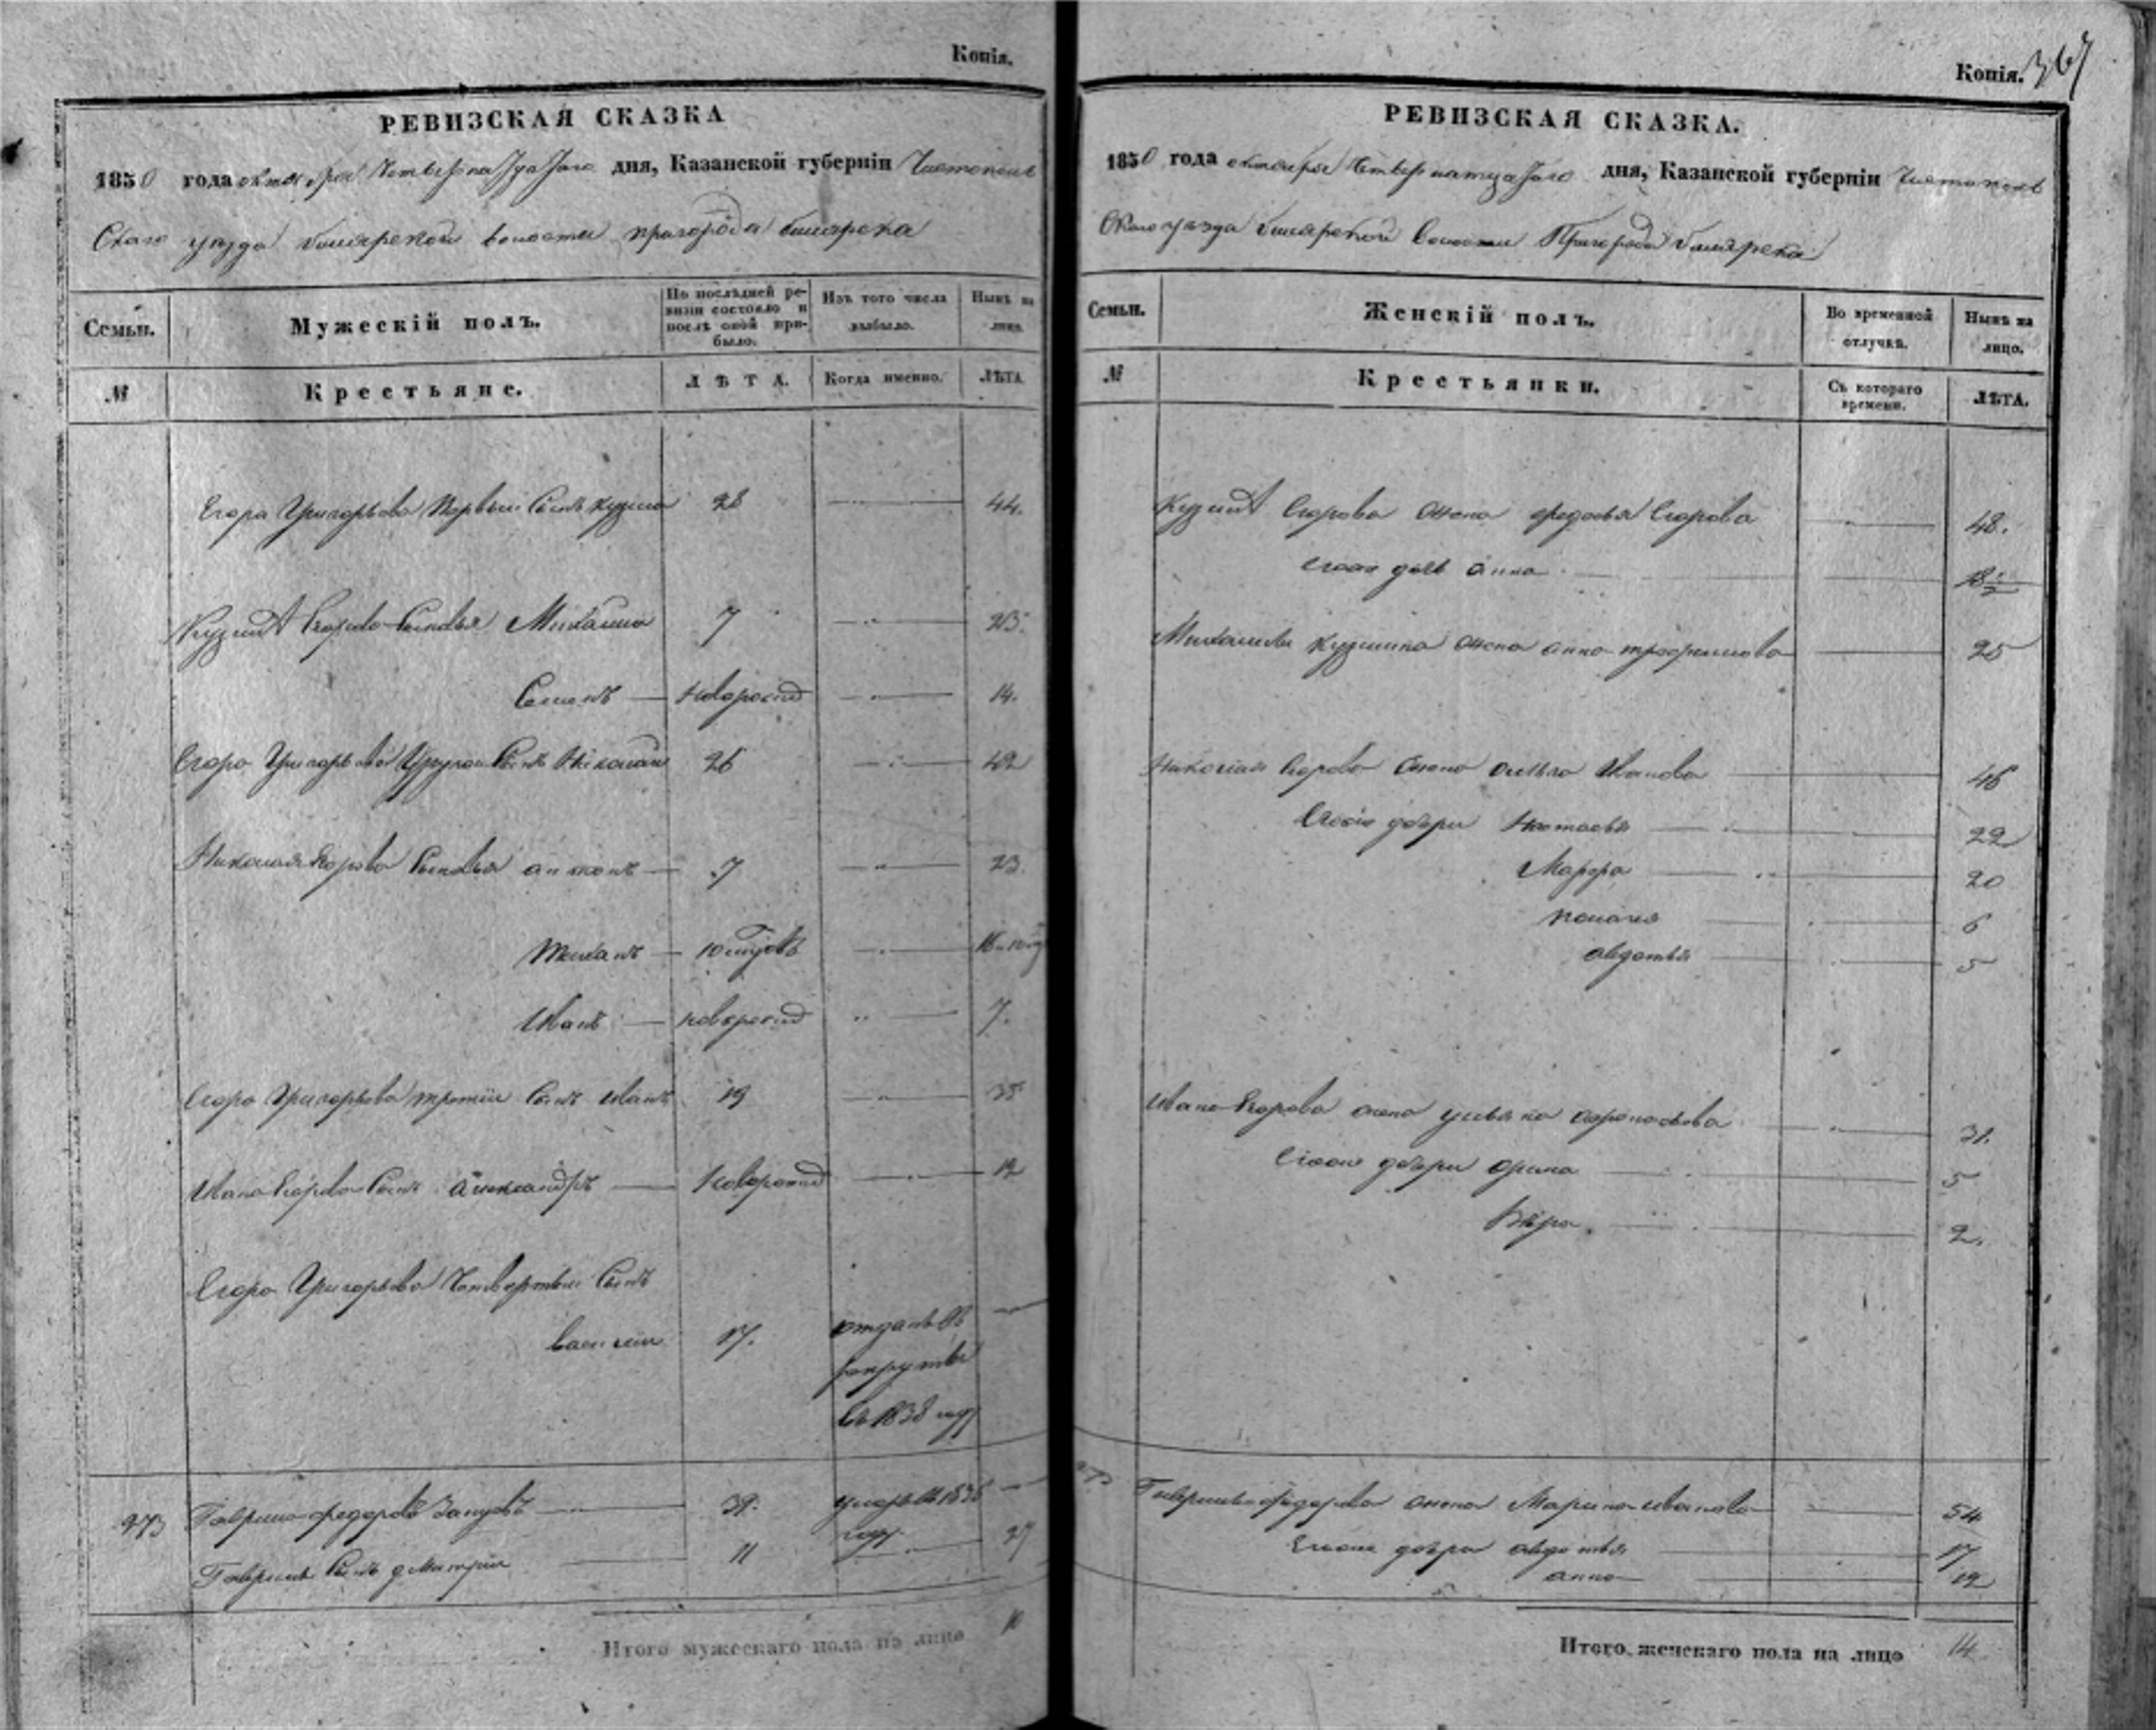 Копія.
РЕВИЗСКАЯ СКАЗКА
1850 года октября Четырнадцатаго дня, Казанской губерніи Чистополь
Скаго уезда билярской волости пригорода билярска
Семьи.
Мужескій полъ.
По послѣдней ре-
визіи состояло и
послѣ оной при-
было.
Изъ того числа
выбыло.
Нынѣ на
лицо.
№
Крестьяне.
ЛѢТА.
Когда именно.
ЛѢТА
Егора Григорьева Первый Сынъ кузма 28 44.
Кузмы Егорова Сыновья Михаила 7 23.
Семенъ новорожд 14.
Егора Григорьева Другой Сынъ Николай 26 42
Николая Егорова Сыновья антонъ 7 23.
тиханъ 10
Иванъ новорожд 7.
Егора Григорьева третий Сынъ иванъ 19 35
Ивана Егорова Сынъ Александръ Новорожд 12
Егора Григорьева Четвертый Сынъ
василий 17. отданъ въ
рекруты
въ 1838 году
273 Гаврила федоровъ 39. умеръ в 1836
году
Гаврилы Сынъ дмитрий 11 27
Итого мужескаго пола на лицо 10
Копія. 367
РЕВИЗСКАЯ СКАЗКА.
1850 года октября Четырнатцатаго дня, Казанской губерніи Чистополь
Скаго уезда билярской волости Пригорода билярска
Семьи.
Женскій полъ.
Во временной
отлучкѣ.
Нынѣ на
лицо.
№
Крестьянки.
Съ котораго
времени.
ЛѢТА.
Кузмы Егорова жена федосья Егорова 48.
Егоже дочь анна 18
Михаилы кузмина жена анна трофимова 25
Николая Егорова жена ольга Иванова 46
Егоже дочери Настасья 22
Марфа 20
пелагея 6
авдотья 5
Ивана Егорова жена ульяна афонасьева 31.
Егоже дочери Орина 5
Вера 2.
273 Гаврилы федорова жена Марина иванова 54
Егоже дочери авдотья 17
анна 12
Итого женскаго пола на лицо 14